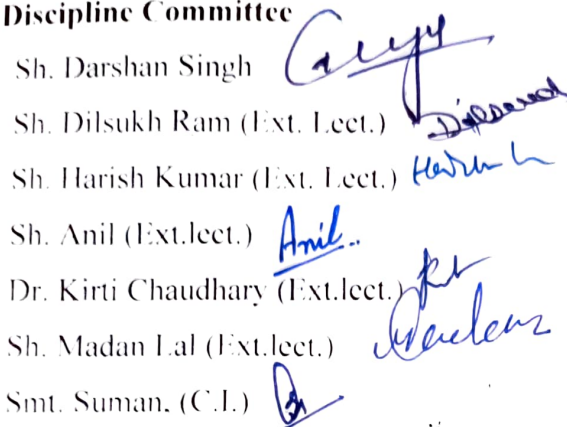 Discipline Committee
Sh. Darshan Singh
Sh. Dilsukh Ram (Ext. Lect.) Dilsukh
Sh. Harish Kumar (Ext. Lect.)
Sh. Anil (Ext.lect.) Anil
Dr. Kirti Chaudhary (Ext.lect.)
Sh. Madan Lal (Ext.lect.)
Smt. Suman, (C.I.)